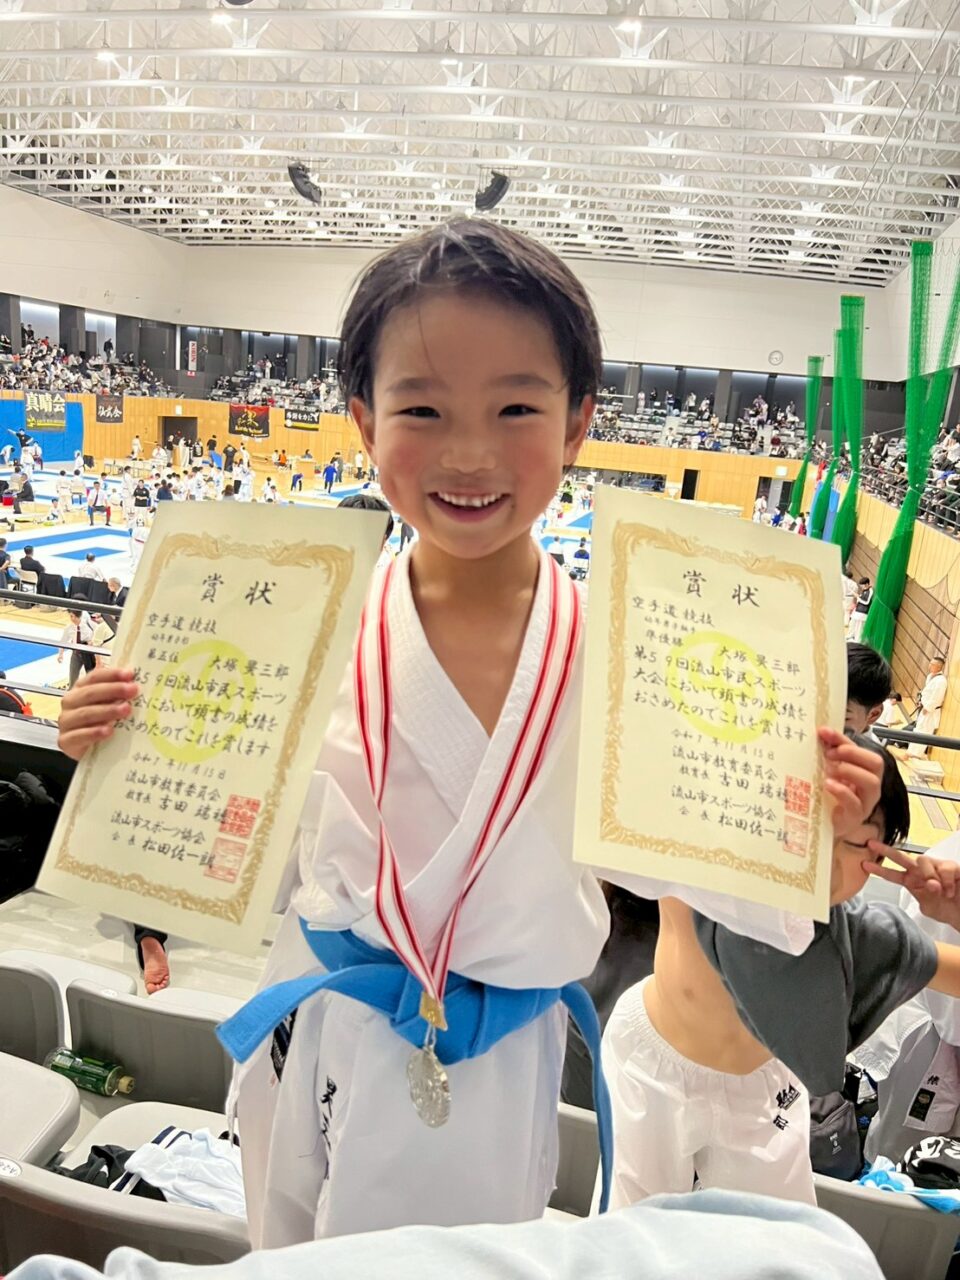 真晴会
賞状
空手道 競技
幼年男子形
第五位 大塚 晃三郎
第59回流山市民スポーツ
大会において頭書の成績を
おさめたのでこれを賞します
令和7年11月15日
流山市教育委員会
教育長 吉田 瑞穂
流山市スポーツ協会
会長 松田佐一郎
賞状
空手道 競技
幼年男子組手
準優勝 大塚 晃三郎
第59回流山市民スポーツ
大会において頭書の成績を
おさめたのでこれを賞します
令和7年11月15日
流山市教育委員会
教育長 吉田 瑞穂
流山市スポーツ協会
会長 松田佐一郎